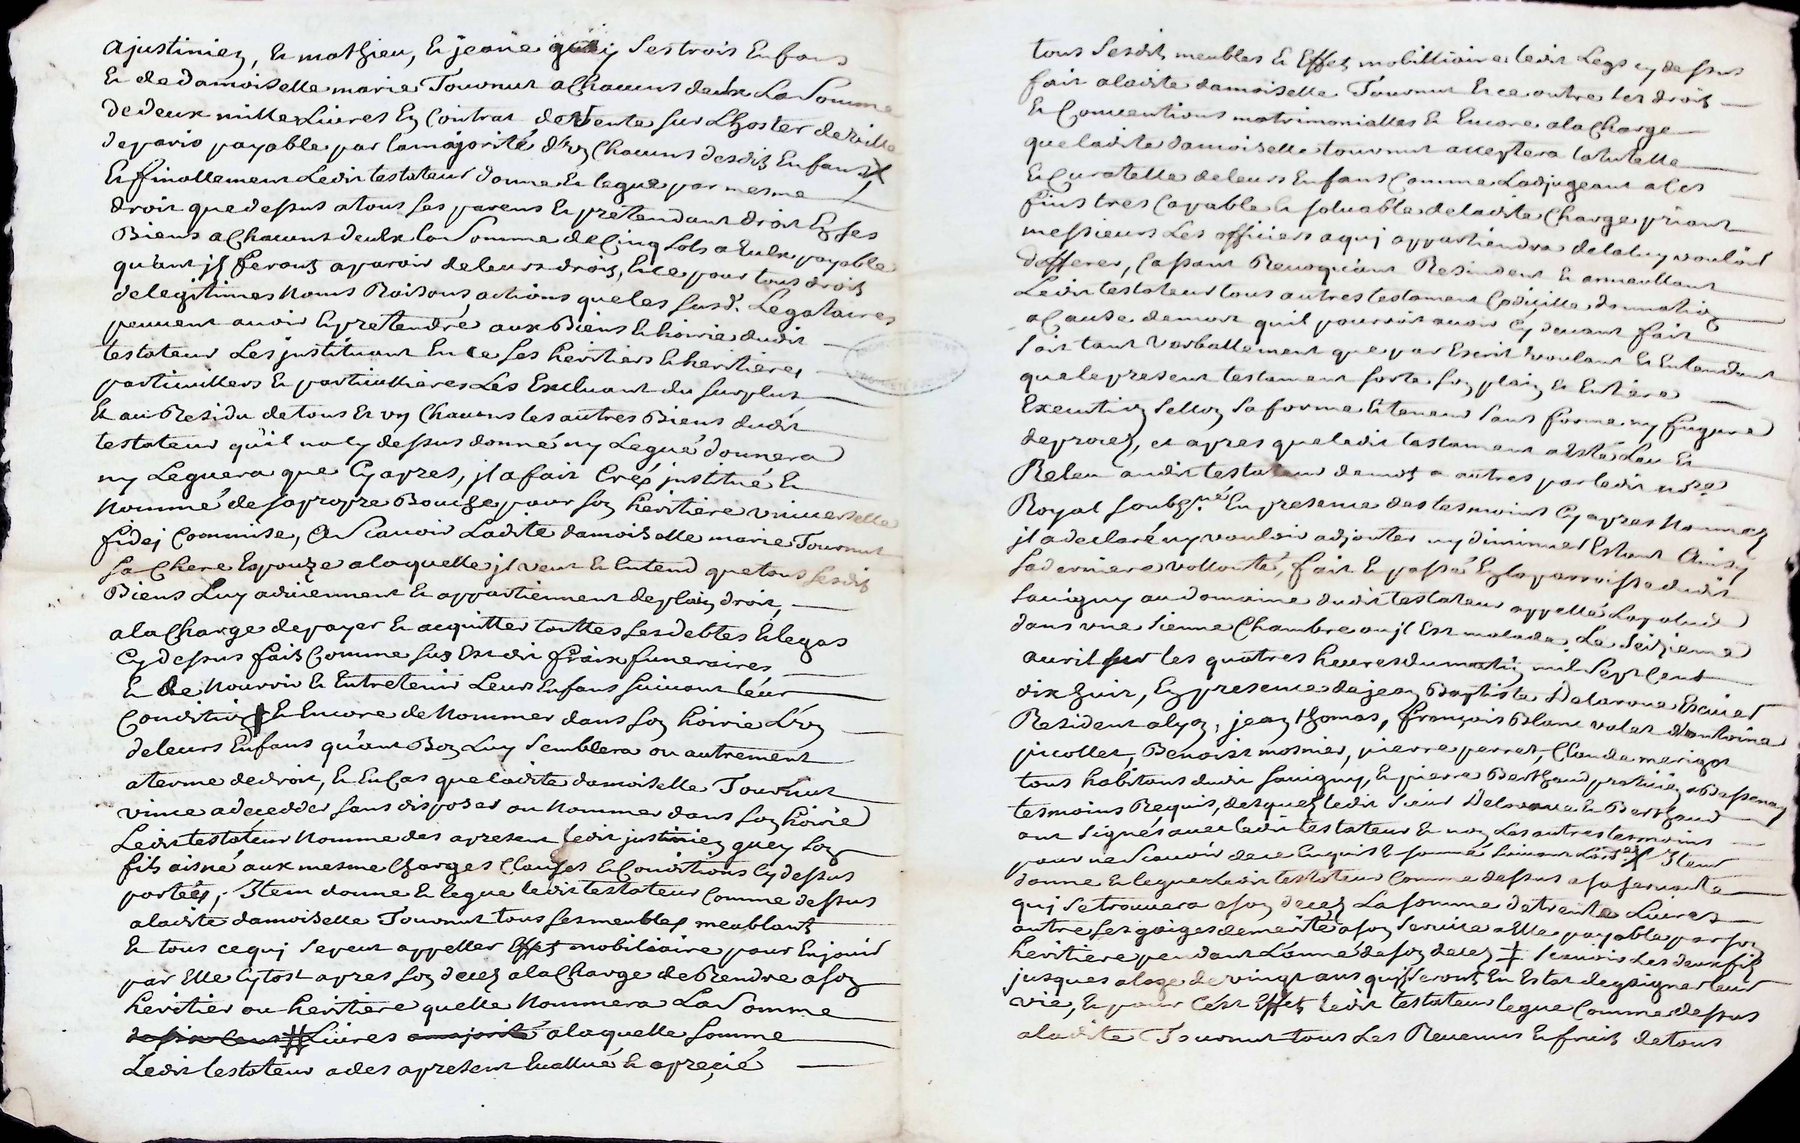 a justinien, et mathieu, et jeane guëy ses trois Enfans
Et de damoiselle marie Tournut a Chacuns deulx La Somme
de deux mille Livres En Contrat de Rente sur L'hostel de ville
de paris payable par la majorité d'vn Chacuns desdits Enfans X
Et finallement Ledit testateur donne Et legue par mesme
droit que dessus a tous ses parens Et pretendant droit En ses
Biens a Chacuns deulx la Somme de Cinq Sols a Eulx payable
quant jls feronts aparoir de leurs droits, Et ce pour tous droits
de legitimes Noms Raisons actions que les susd. Legataires
peuvent avoir Et pretendre aux Biens Et hoirie dudit
testateur Les justituant En ce ses heritiers Et heritieres
particulliers Et particullieres Les Excluant du surplus
Et au Residu de tous Et vn Chacuns les autres Biens dudit
testateur qu'il na Cy dessus donné ny Legué donnera
ny Leguera que Cy apres, jl a fait Créé justitué Et
Nommé de sa propre Bouche pour son heritiere vniverselle
fidej Commise, Ascavoir Ladite damoiselle marie Tournut
sa Chere Espouze a laquelle jl veut Et Entend que tous sesdits
Biens Luy adviennent Et appartiennent de plain droit,
a la Charge de payer Et acquitter touttes ses debtes Et legas
Cy dessus faits Comme sus Est dit fraix funeraires
Et de Nourrir Et Entretenir Leurs Enfans suivant leur
Condition ‡ Et Encore de Nommer dans son hoirie L'vn
de leurs Enfans quant Bon Luy semblera ou autrement
a terme de droit, Et En Cas que ladite damoiselle Tournut
vince a decedder sans disposer ou Nommer dans son hoirie
Ledit testateur Nomme des apresent ledit justinien guëy son
fils aisné aux mesme Charges Clauses Et Conditions Cy dessus
portées, Item donne Et legue ledit testateur Comme dessus
a ladite damoiselle Tournut tous ses meubles meublants
Et tous ce quj se peut appeller Effets mobiliaire pour En jouir
par Elle Cytost apres son decez a la Charge de Rendre a son
heritier ou heritiere quelle Nommera La Somme
de six Cens ⧻ Livres a majorité a laquelle Somme
Ledit testateur a des apresent Evallué Et apreçié
tous sesdits meubles Et Effets mobilliaire ledit Legs cy dessus
fait a ladite damoiselle Tournut Et ce outre ses droits
Et Conventions matrimonialles Et Encore a la Charge
que ladite damoiselle tournut acceptera la tutelle
Et Curatelle de leurs Enfans Comme Ladjugeant a Ces
fins tres Capable Et solvable de ladite Charge priant
messieurs Les officiers a quj appartiendra de la luy vouloir
defferer, Cassant Revoquant Resindent Et annullant
Ledit testateur tous autres testament Codicille donnation
a Cause de mort quil pourroit avoir Cy devant fait
soit tant Verballement que par Escrit voulant Et Entendant
que le present testament sorte son plain Et Entiere
Execution sellon sa forme Et teneur sans forme ny figure
de procez, et apres que ledit testament a Esté Leu Et
Releu audit testateur de mot a autres par ledit notre
Royal soubzné. En presence des tesmoins Cy apres Nommez
jl a declaré ny vouloir adjouter ny diminuer Estant Ainsy
sa derniere vollonté, fait Et passé En la parroisse dudit
savigny au domaine dudit testateur appellé Lapalud
dans vne sienne Chambre ou jl Est malade, Le Seizieme
avril sur les quatres heures du matin mil Sept Cens
dix huit, En presence de jean Baptiste Delaroue Escuier
Resident a lyon, jean thomas, françois Blanc valet d'antoine
picollet, Benoist mosnier, pierre perret, Claude merigot
tous habitans dudit savigny, Et pierre Berthaud praticien a Bessenay
tesmoins Requis, desquels ledit Sieur Delaroue Et Berthaud
ont signés avec ledit testateur Et non Les autres tesmoins
pour ne scavoir de ce Enquis Et sommé suivant L'ord. X Item
donne Et legue Ledit testateur Comme dessus a sa servante
quj se trouvera a son decez La somme de trente Livres
outre ses gaiges de merité a son service a Elle payable par son
heritiere pendant L'anné de son decez ‡ scavoir Les deux fils
jusques a lage de vingt ans quj seront En Estat de gaigner leur
vie, Et pour Cest Effet ledit testateur legue Comme dessus
a ladite Tournut tous Les Revenus Et fruits de tous